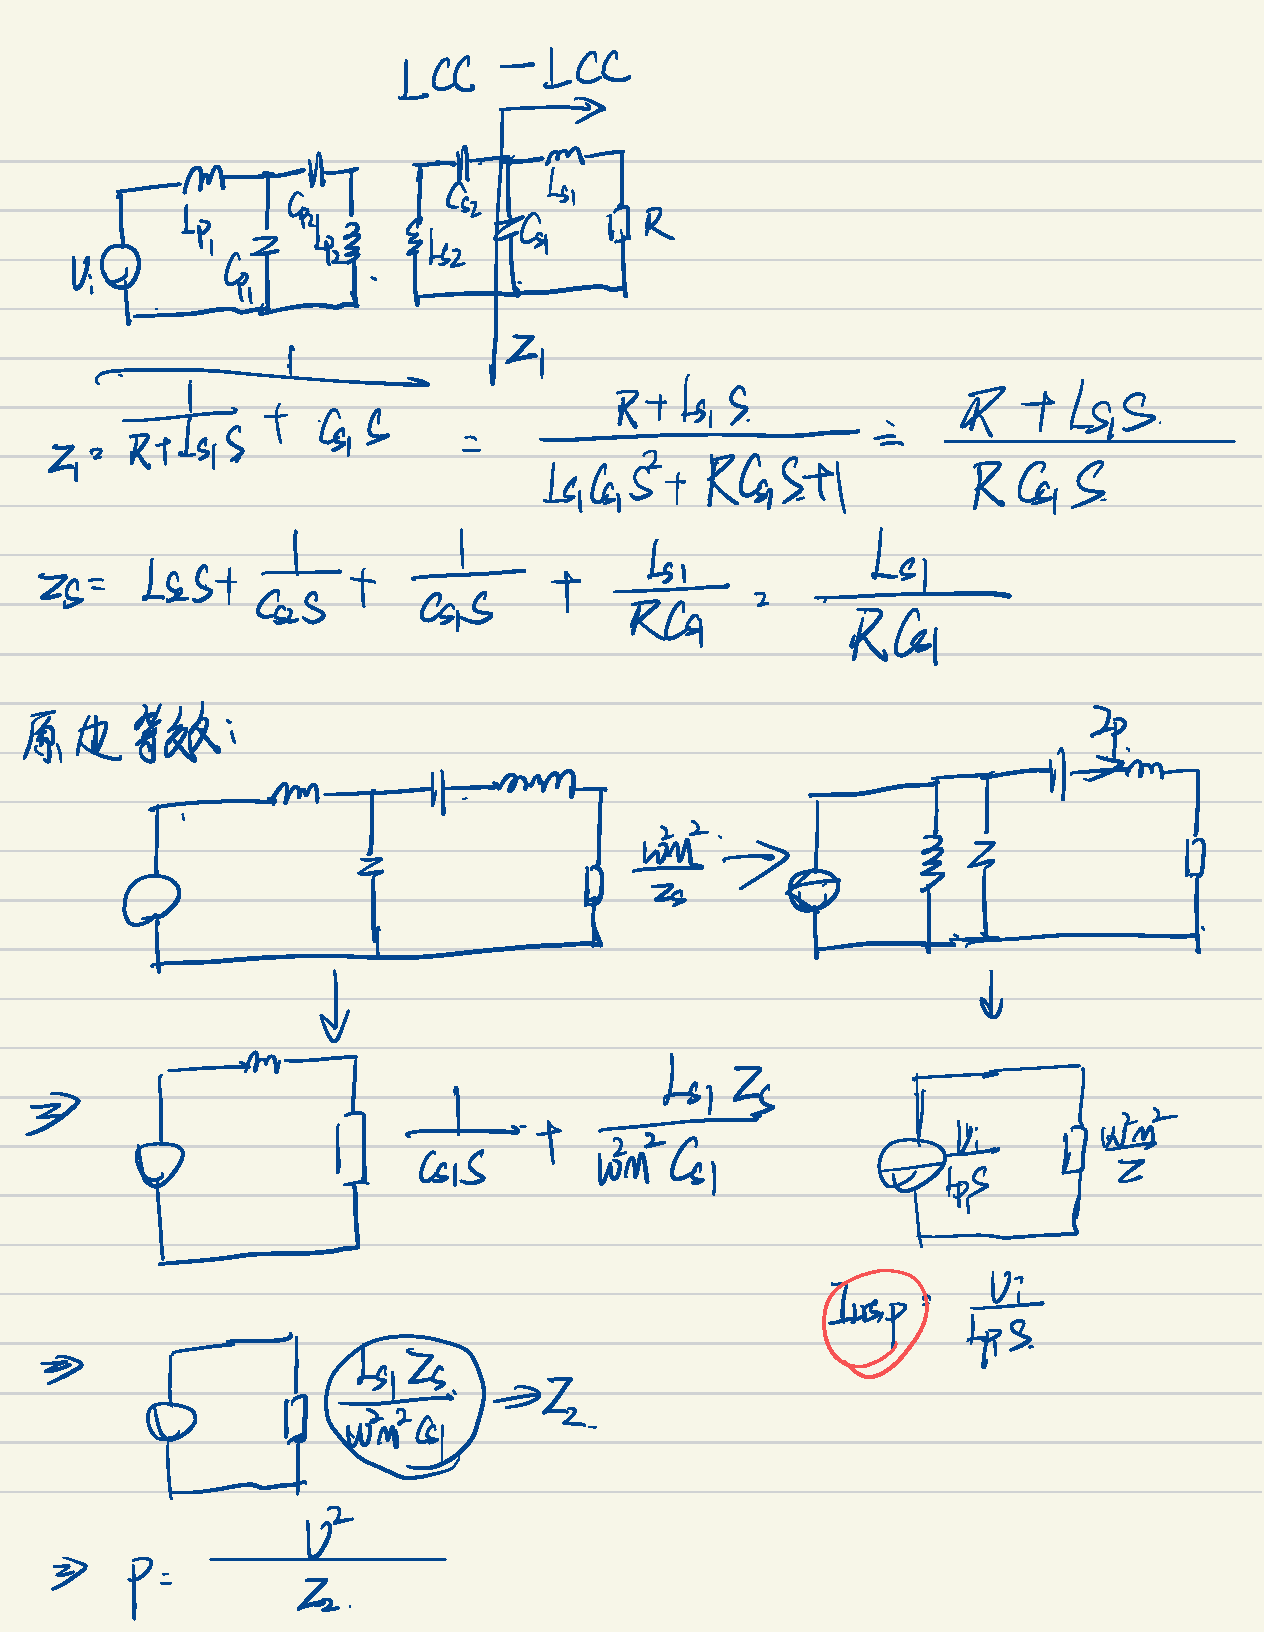 LCC - LCC
Vi Lp1 Cp1 Cp2 Lp2 Ls2 Cs2 Cs1 Ls1 R
Z1
Z1 = 1 / (1/(R+Ls1S) + Cs1S) = (R+Ls1S) / (Ls1Cs1S²+RCs1S+1) = (R+Ls1S) / (RCs1S)
ZS = Ls2S + 1/(Cs2S) + 1/(Cs1S) + Ls1/(RCs1) = Ls1/(RCs1)
原边等效:
Ip
ω²M²/Zs
1/(Cs1S) + Ls1Zs/(ω²M²Cs1)
Vi/(Lp1S) ω²M²/Z
Vi/(Lp1S)
Ls1Zs/(ω²M²Cs1) → Z2
⇒ P = U²/Z2